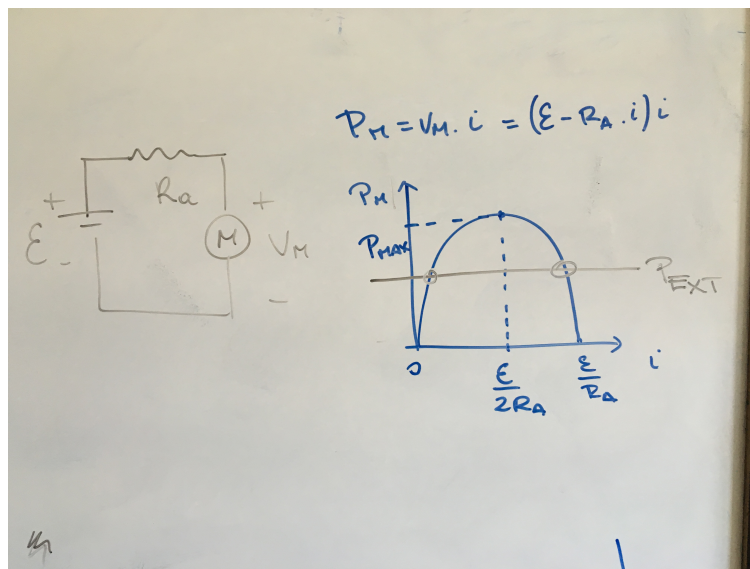 P_M = V_M . i = (ε - R_A . i) i
+ Ra +
ε M V_M
- -
P_M
P_MAX
P_EXT
0 ε/2R_A ε/R_A i